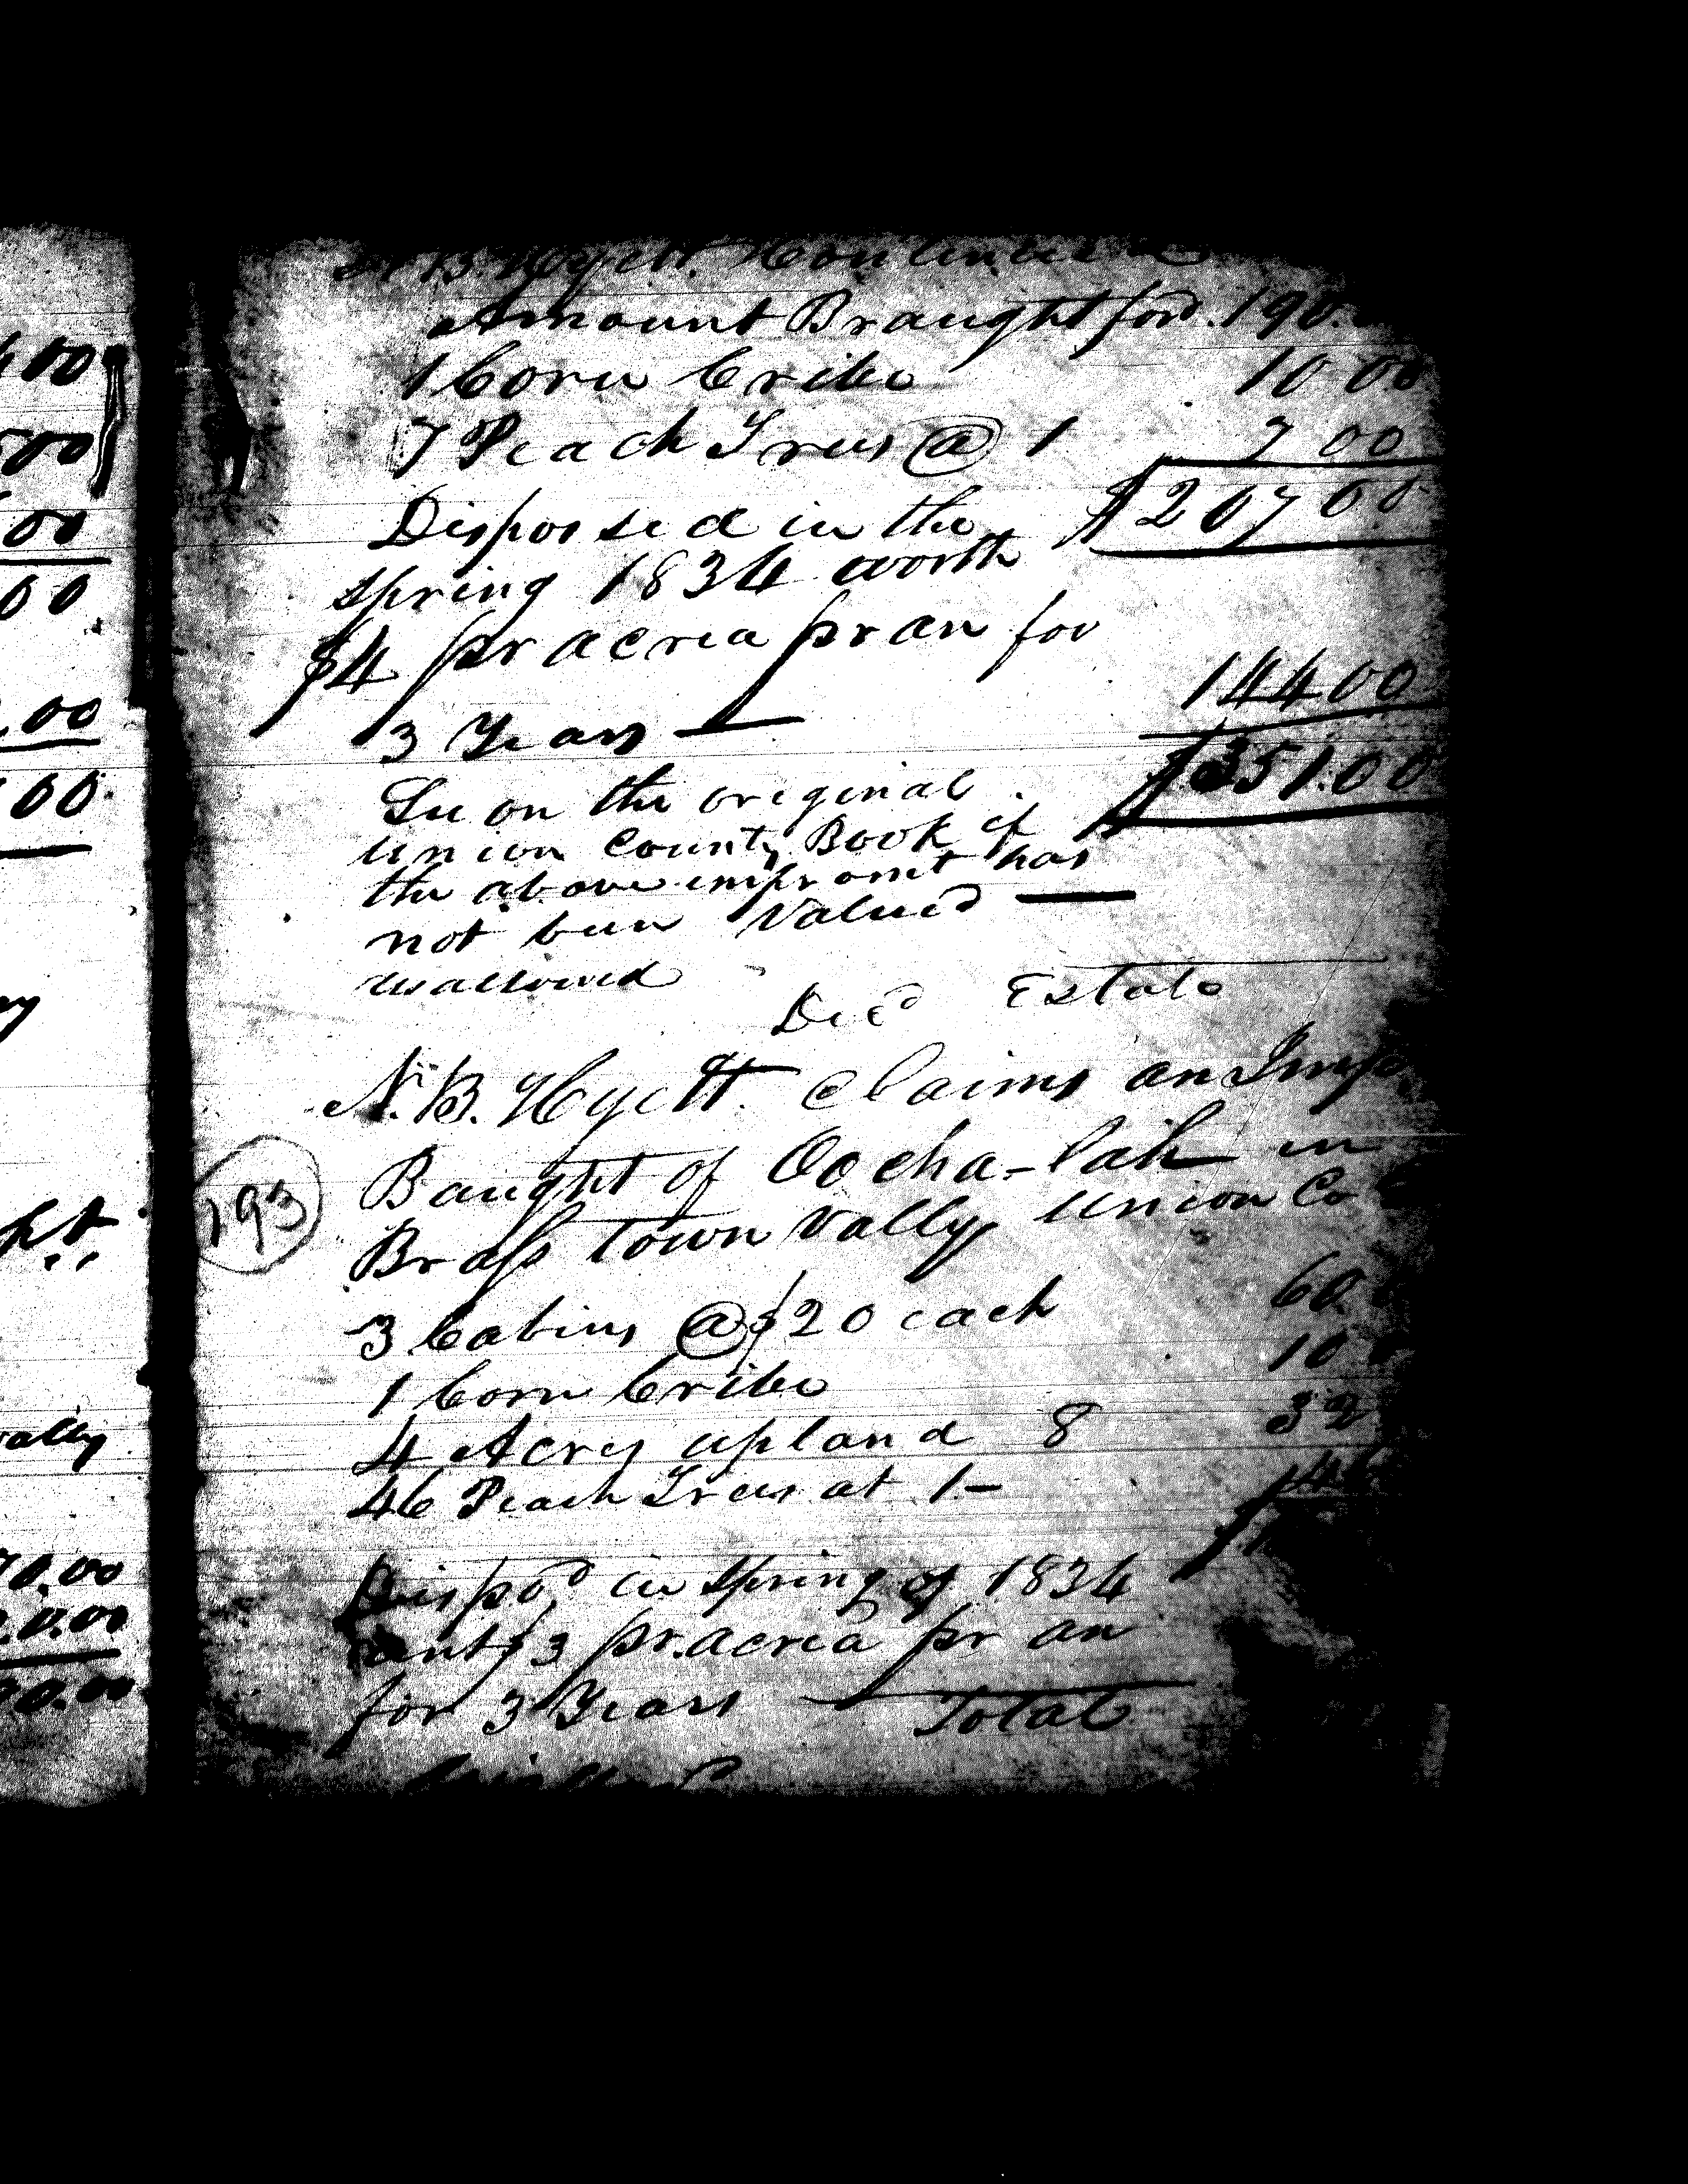 N.B. Hyett. Continued
Amount Braught ford. 190.
1 Corn Cribe 10 00
7 Peach Trees @ 1 7 00
Dispossed in the $207 00
spring 1834 worth
$4 pr acrea pr an for
3 Years — 144 00
$351.00
See on the original
Union County Book if
the above imprомt has
not been Valued —
disallowed
Decd Estate
N.B. Hyett. Claims an
Baught of Oocha-lah in
193
Brass town Vally Union Co
3 Cabins @ $20 each 60
1 Corn Cribe 10
4 Acres upland 8 32
46 Peach Trees at 1-
Dispod in spring of 1834
$3 pr. acrea pr an
for 3 Years — Total
00
500
00
00
.00
00.
ht
vally
70.00
0.00
00.00